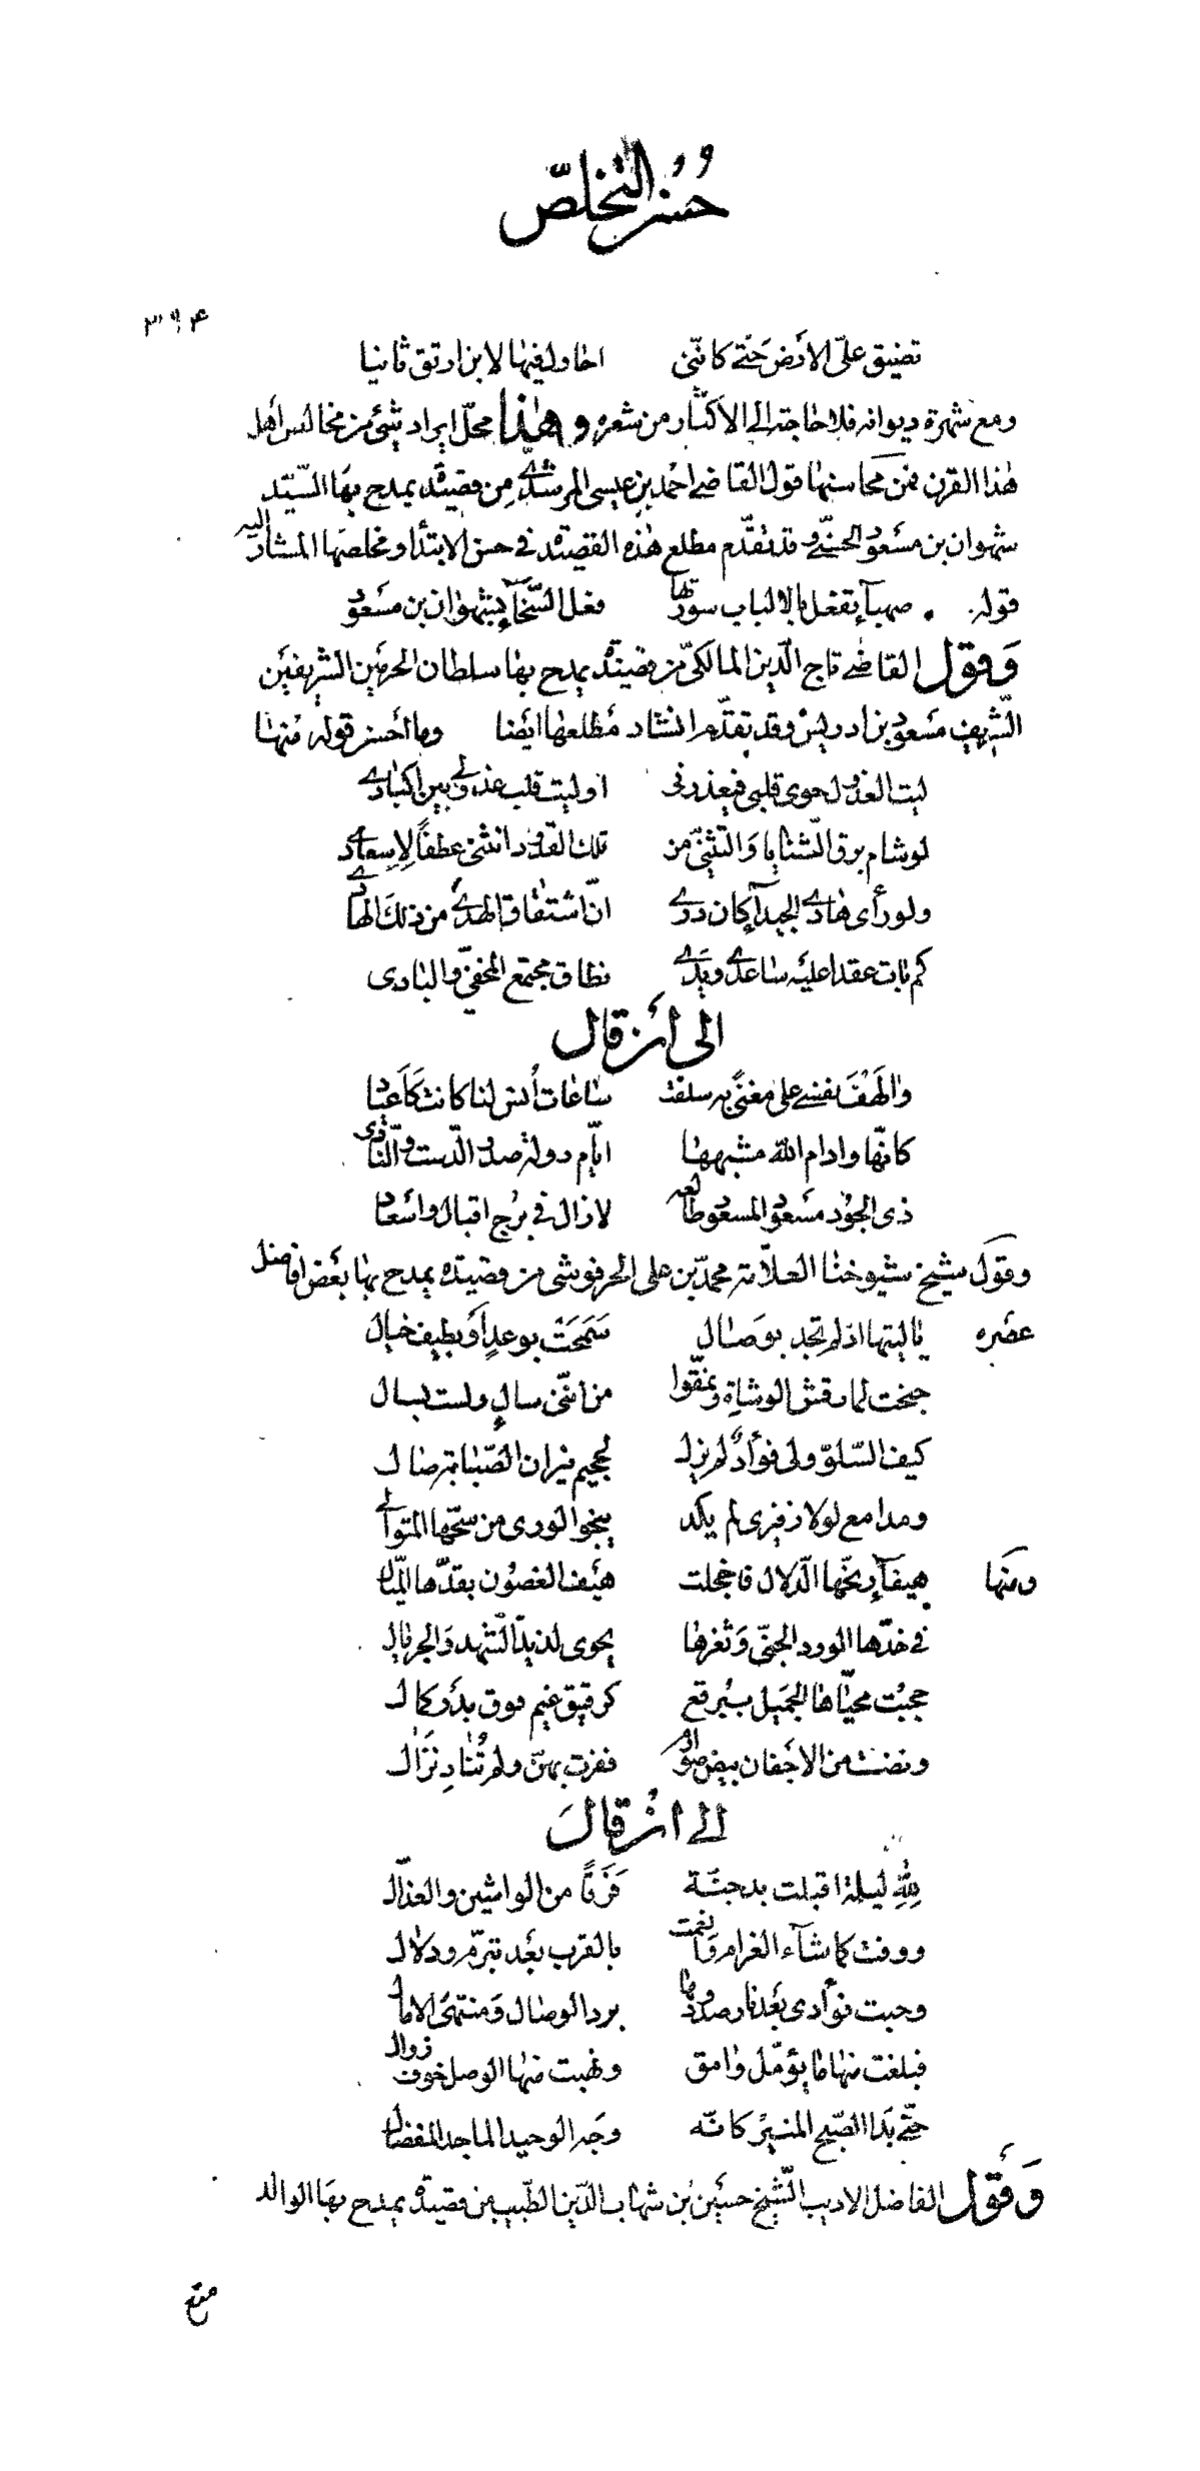 حُسْن التخلصّ
٣٩۴
تضيق علىّ الأرض حتى كانّنى احاول فيها لابن ارتق ثانيا
ومع شهرة ديوانه فلا حاجة الى الاكثار من شعره وهذا محلّ ايراد شئ من مخالص أهل
هذا القرن فمن محاسنها قول القاضى احمد بن عيسى المرشدى من قصيدة يمدح بها السّيّد
شهوان بن مسعود الحسنى وقد تقدّم مطلع هذه القصيدة فى حسن الابتدأ ومخلصها المشار اليه
قوله. صهبآء تفعل بالالباب سورتها فعل السّخآء بشهوان بن مسعود
وَقول القاضى تاج الّدين المالكىّ من قصيدة يمدح بها سلطان الحرمين الشريفين
الشّريف مسعود بن ادريس وقد تقدّم انشاد مطلعها ايضا وما أحسن قوله منها
ليت العذول حوى قلبى فيعذرنى او ليت قلب عذولى بين اكبادى
لو شام برق الثّنايا وَالتثنّى من تلك القدود انثنى عطفاً لِاِسعاد
ولو رأى هادى الجيدآء كان درى انّ اشتقاق الهدى من ذلكَ الهادى
كم بات عقدا عليه ساعدى ويدى نطاق مجتمع المخفىّ والبادى
الى أن قال
والَهْفَ نفسى على مغنىً به سلفت ساعات اُنس لنا كانت كَاَعياد
كانّها وادام اللّه مشبهها ايّام دولة صدر الدّست وَالنّادى
ذى الجُود مسعود المسعود طالعه لازال فى بُرج اقبال واسعاد
وقول شيخ شيوخنا العلاّمة محمّد بن على الحرفوشى من قصيدة يمدح بها بعض افاضل
عصره ياليتها اذ لم تجد بوصال سَمَحَت بوعدٍ اَو بطيف خيال
جنحت لما رقش الوشاة ونمّقوا من انّنى سالٍ ولست بسال
كيف السّلوّ ولى فوأدٌ لم يزل لجحيم نيران الصّبابة صال
ومدامع لولا زفيرى لم يكد ينجو الورى من سحّها المتوالى
ومنها هيفآء رنّحها الدّلال فاخجلت هيف الغصُون بقدّها الميّال
فى خدّها الورد الجنىّ وَثغرها يحوى لذيذ الشّهد وَالجريال
حجبْت محيّاها الجميل ببُرقع كرقيق غيم فوق بدر كمال
ونضت من الاجفان بيض صوارم ففزت بهنّ ولم تُناد نَزَال
الى ان قالَ
لِلّهِ ليلة اقبلت بدجنّة فَرَقاً من الواشين والعذّال
ووفت كما شآء الغرام وَانعمت بالقرب بعد تبرّم ودلال
وحبت فوأدى بعد نار صدودها برد الوصال وَمنتهى الامال
فبلغت منها ما يؤمّل وامق ونهبت منها الوصل خوف زوال
حتّى بَدا الصّبح المنيرُ كانّه وجه الوحيد الماجد المفضال
وَقول الفاضل الاديب الشّيخ حسين بن شهاب الدّين الطّبيب من قصيدة يمدح بها الوالد